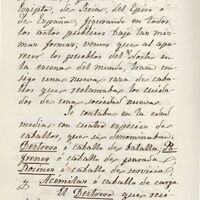 Egipto, de Siria, del Epiro ó
de España, figurando en todos
los citados pueblos bajo las mis-
mas formas; vemos que al apa-
recer los pueblos del Norte en
la escena del mundo, traen con-
sigo una nueva raza de caba-
llos que reclamaban los cuidados
de una sociedad nueva.
Se contaban en la edad
media con cuatro especies de
caballos que se denominaban:
Destrero ó caballo de batalla, Pa
frenes ó caballo de parada,
Rocines ó caballo de servicio,
y Acemilas ó caballo de carga.
El Destrero que reci-